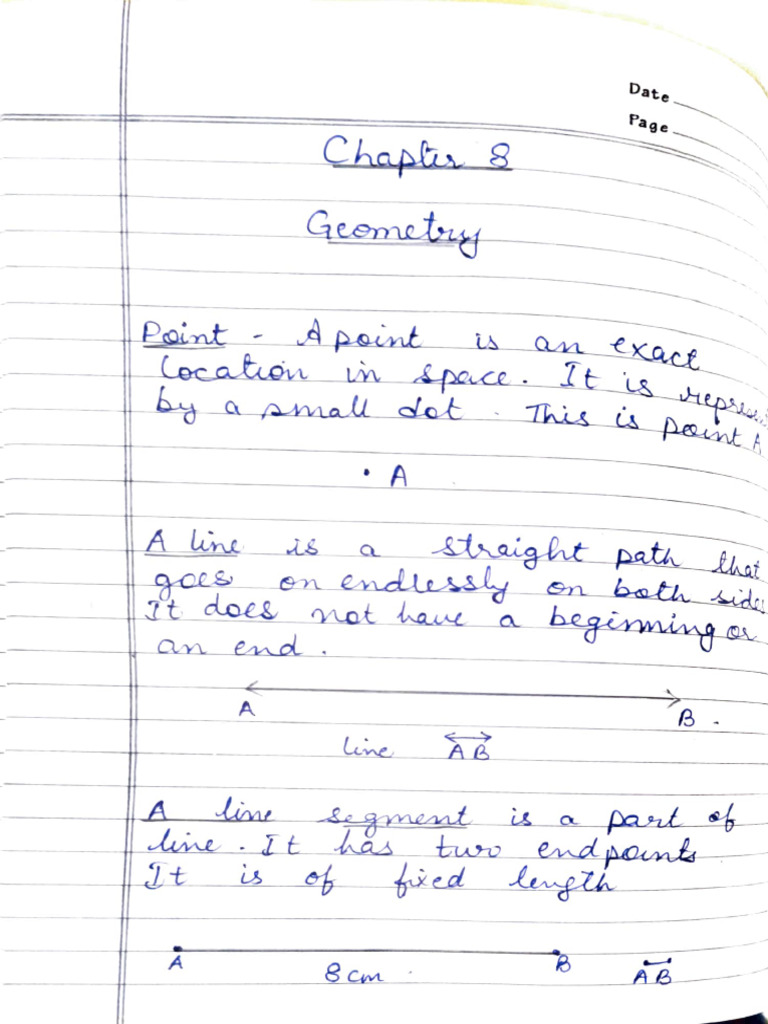 Date
Page
Chapter 8
Geometry
Point - A point is an exact
location in space. It is
by a small dot. This is point A
• A
A line is a straight path that
goes on endlessly on both sides
It does not have a beginning or
an end.
A B.
line AB
A line segment is a part of
line. It has two endpoints
It is of fixed length
A B AB
8 cm